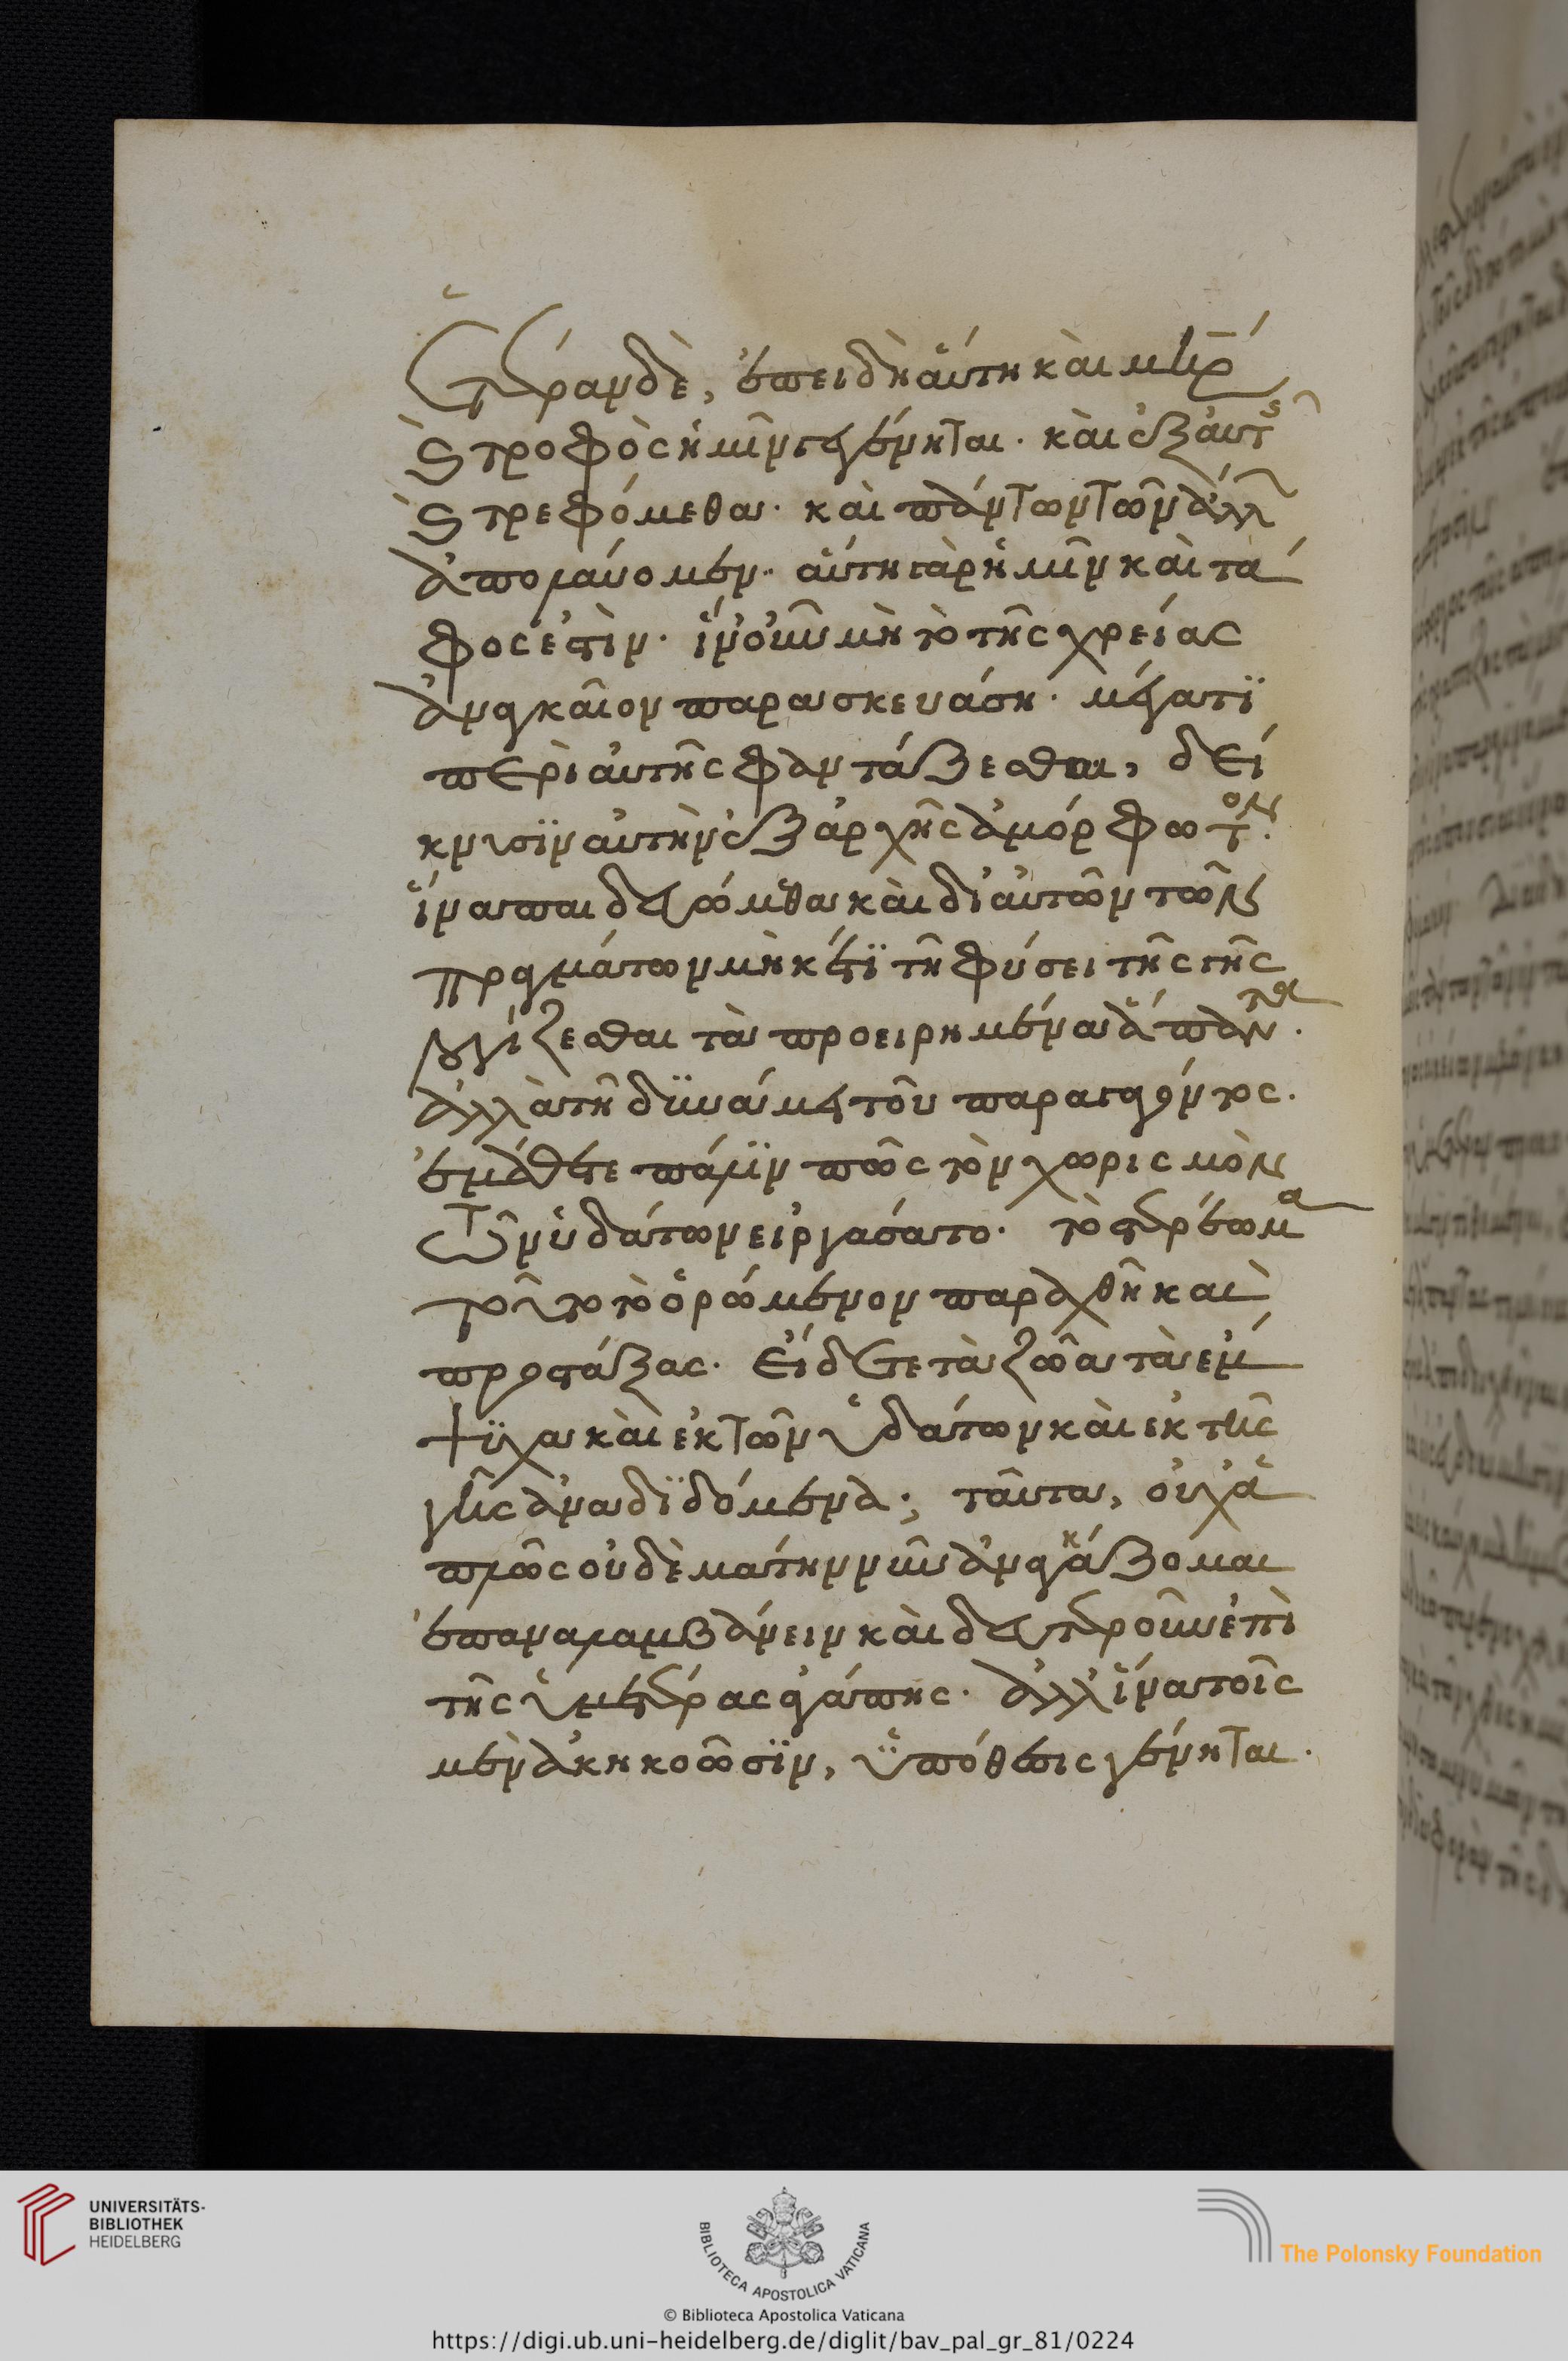 ἑτέραν δὲ, ἐπειδὴ αὕτη καὶ μῆρ
ϗ τροφὸς ἡμῖν γεγένηται· καὶ ἐξ αὐτῆς
ϗ τρεφόμεθα· καὶ πάντων τῶν ἄλλων
ἀπολαύομεν· αὕτη γὰρ ἡμῖν καὶ τά
φος ἐστὶν· ἵν' οὖν μὴ τὸ τῆς χρείας
ἀναγκαῖον παρασκευάση· μέγα τϊ
περὶ αὐτῆς φαντάζεσθαι, δεί
κνυσϊν αὐτὴν ἐξ ἀρχῆς ἀμόρφωτον.
ἵνα παιδευώμεθα καὶ δι' αὐτῶν τῶν
πραγμάτων μὴκέτϊ τῆ φύσει τῆς γῆς
λογίζεσθαι τὰ προειρημένα ἅπαντα.
ἀλλὰ τῆ δϋνάμει τοῦ παραγαγόντος.
ἐμάθετε πάλϊν πῶς τὸν χωρισμὸν
τῶν ὑδάτων εἰργάσατο· τὸ στερέωμα
τοῦτο τὸ ὁρώμενον παραχθῆ καὶ
προστάξας. εἴδετε τὰ ζῶα τὰ ἔμ
ψϋχα καὶ ἐκ τῶν ὑδάτων καὶ ἐκ τῆς
γῆς ἀναδϊδόμενα; ταῦτα, οὐχ ἁ
πλῶς οὐδὲ μάτην νῦν ἀναγκάζομαι
ἐπαναλαμβάνειν καὶ δευτεροῦν ἐπὶ
τῆς ὑμετέρας ἀγάπης. ἀλλ' ἵνα τοῖς
μὲν ἀκηκοῶσϊν, ὑπόθεσις γένηται.
UNIVERSITÄTS-
BIBLIOTHEK
HEIDELBERG
BIBLIOTECA APOSTOLICA VATICANA
The Polonsky Foundation
© Biblioteca Apostolica Vaticana
https://digi.ub.uni-heidelberg.de/diglit/bav_pal_gr_81/0224